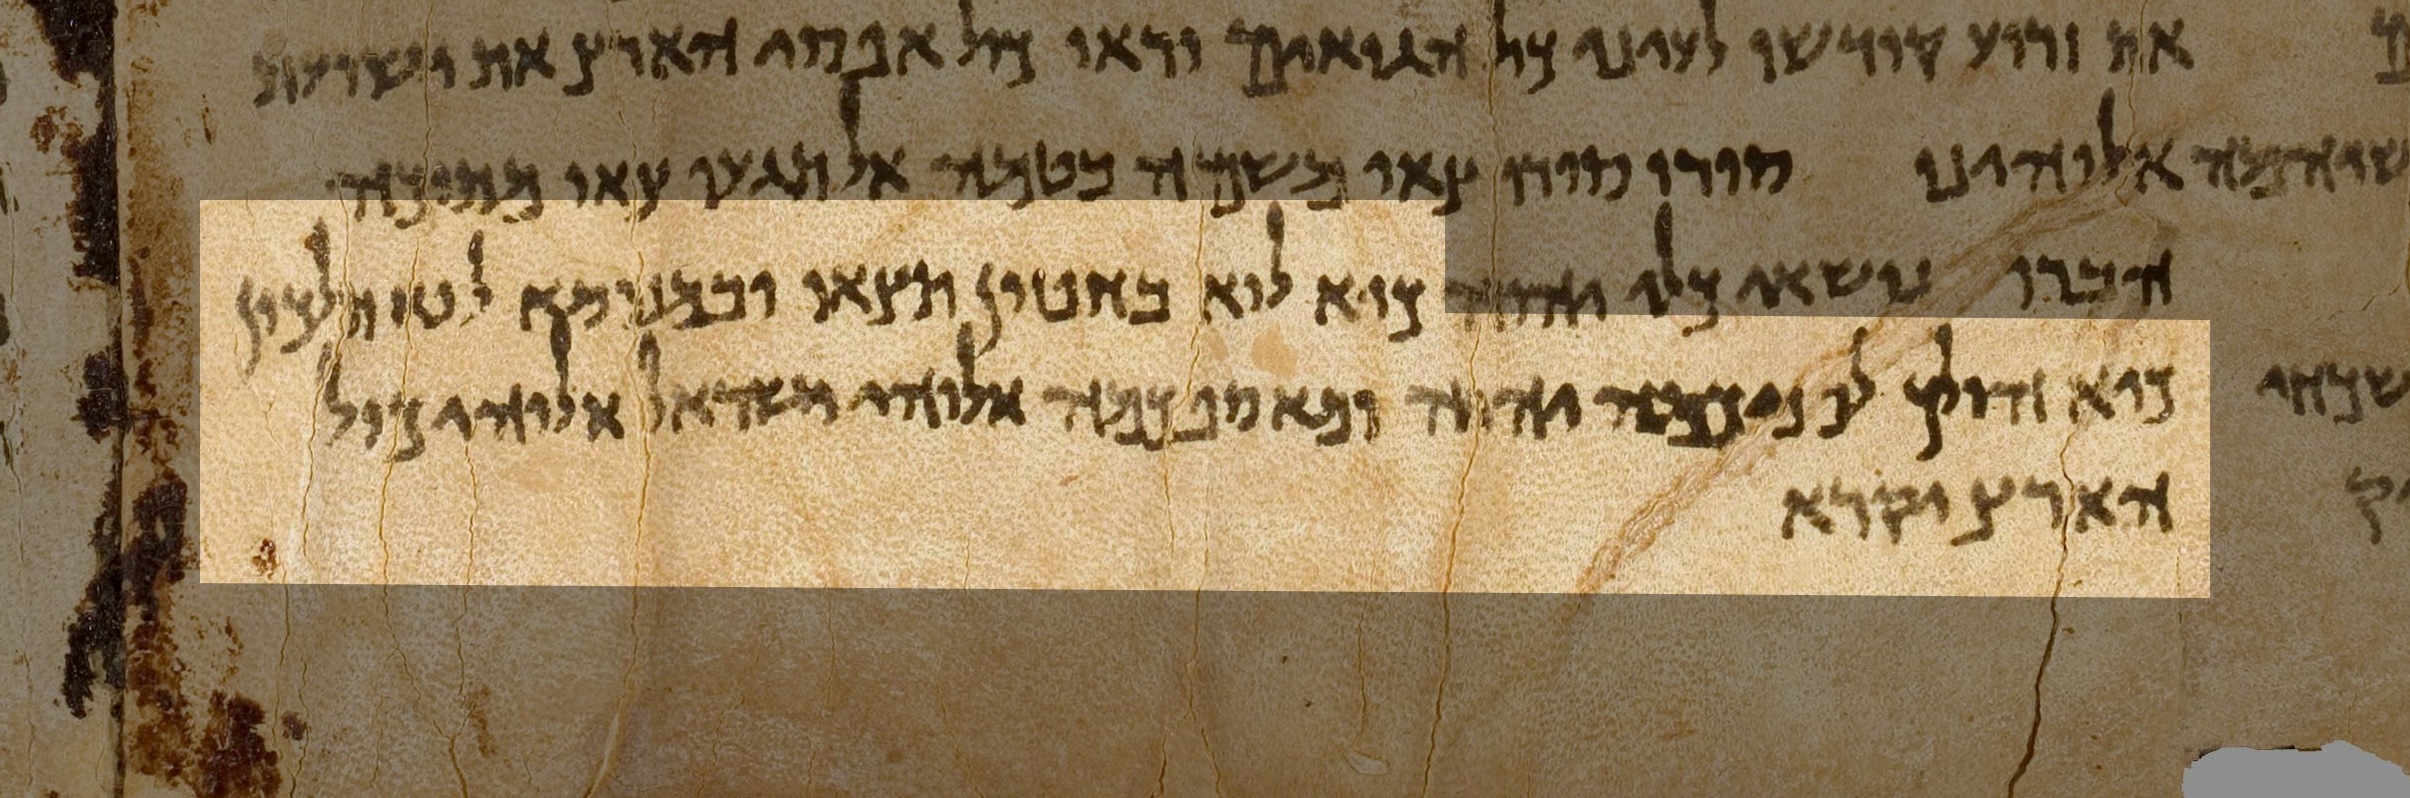 את זרוע קודשו לעיני כול הגואים וראו כול אפסי הארץ את ישועת
אלוהינו סורו סורו צאו משמה בטמה אל תגעו צאו מתוכה
הברו נושאי כלי יהוה כיא לוא בחפזון תצאו ובמנוסא לוא תלכון
כיא הולך לפניכמה יהוה ומאספכמה אלוהי ישראל אלוהי כול
הארץ יקרא